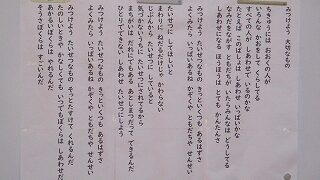 みつけよう 大切なもの
ちきゅうには おおくの人が
いろんな かおをして くらしてる
すべての人が しあわせでいるのかな
たった このぼしは しあわせいっぱいかな
なみだをながす ともだちがいたらみんなは どうしてる
しあわせになる ほうほうは とてもかんたんさ
みつけよう たいせつなもの きっといくつも あるはずさ
よくみたら いっぱいあるね かぞくや ともだち せんせい
たいせつに してほしいと
まわりに ねだるだけじゃ かわらない
じぶんから たいせつに していると
気づかないうちに たいせつにされてるから
まちがいは だれにでもある あとしまつだって できるんだ
ひとりでできない しあわせ たいせつにしよう
みつけよう たいせつなもの きっといくつも あるはずさ
よくみたら いっぱいあるね かぞくや ともだち せんせい
みつけよう たいせつなもの そっとたすけて くれるんだ
たのしいときや かなしくても いつでもぼくらは しあわせだ
あかるいぼくらは やさしいんだ
そうさぼくらは すごいんだ